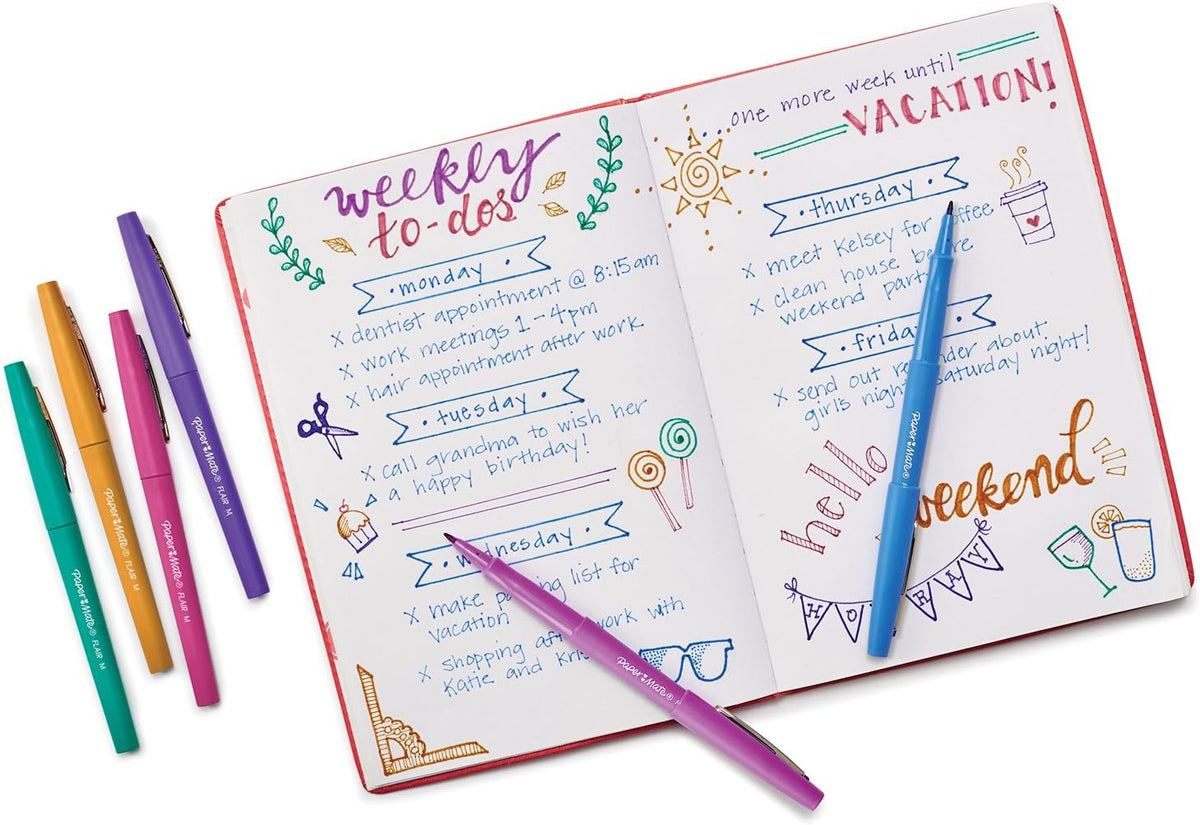 weekly
to-dos
• monday •
x dentist appointment @ 8:15am
x work meetings 1-4pm
x hair appointment after work
• tuesday •
x call grandma to wish her
a happy birthday!
wednesday •
x make list for
vacation
x shopping work with
Katie and
...one more week until
VACATION!
• thursday •
x meet Kelsey for
x clean house
weekend
• •
x send out about
girls night Saturday night!
hello
weekend
Paper Mate® FLAIR M
Paper Mate® FLAIR M
Paper Mate® FLAIR M
Paper Mate® FLAIR M
Paper Mate®
Paper Mate®